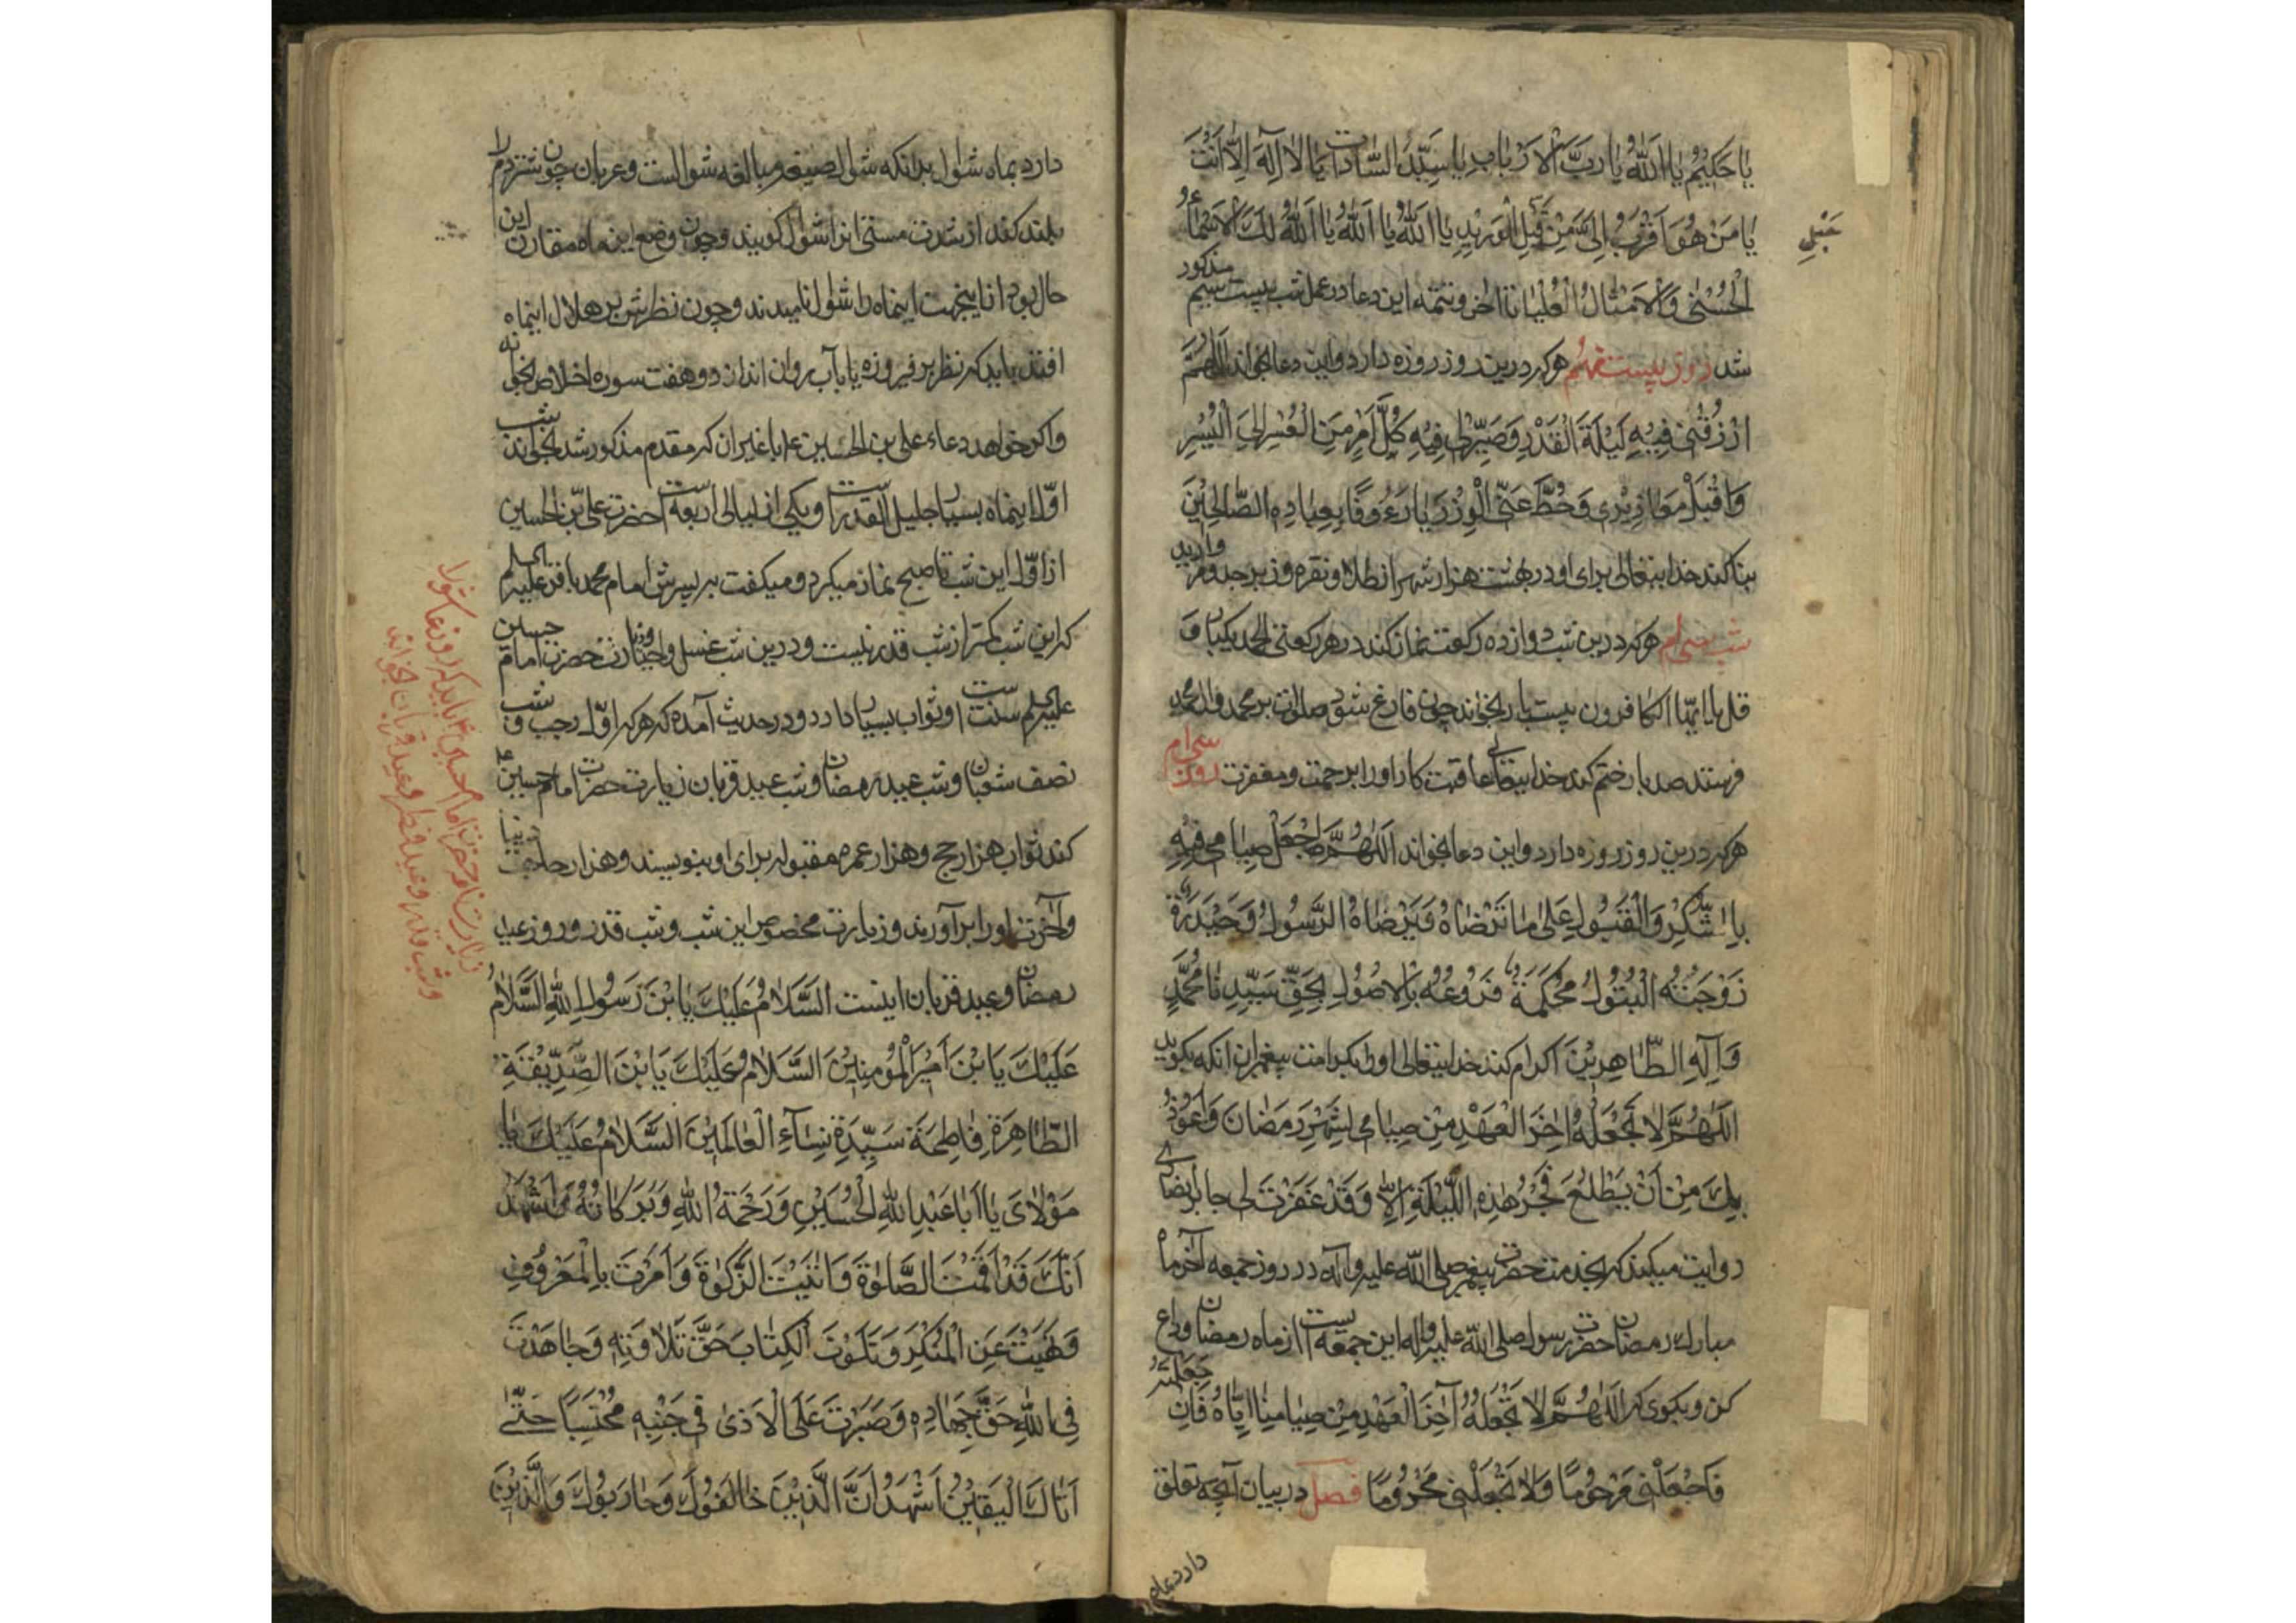 يا حَكيمُ يا اَللّهُ يا رَبَّ الْاَرْبابِ يا سَيِّدَ السّاداتِ يا لا اِلهَ اِلّا اَنْتَ
يا مَنْ هُوَ اَقْرَبُ اِلَىَّ مِنْ قَبْلِ الْوَريدِ يا اَللّهُ يا اَللّهُ يا اَللّهُ لَكَ الْاَسْماءُ
حَبْلِ
الْحُسْنى وَالْاَمْثالُ الْعُلْيا تا آخر و تتمه این دعا در عمل شب بیست مذکور
شد روز بیست نهم هرکه درین روز روزه دارد و این دعا بخواند اَللّهُمَّ
ارْزُقْنى فيهِ لَيْلَةَ الْقَدْرِ وَصَيِّرْلى فيهِ كُلَّ اَمْرٍ مِنَ الْعُسْرِ اِلَى الْيُسْرِ
وَاقْبَلْ مَعاذيرى وَحُطَّ عَنِّى الْوِزْرَ يا رَءُوفًا بِعِبادِهِ الصّالِحينَ
بنا کند خدایتعالی برای او در بهشت هزار شهر از طلا و نقره و زبرجد و مروارید
شب سی ام هرکه درین شب دوازده رکعت نماز کند در هر رکعتی الحمد یکبار و
قل یا ایها الکافرون بیست بار بخواند چون فارغ شود صلوات بر محمد و ال محمد
فرستد صد بار ختم کند خدایتعالی عاقبت کار اورا برحمت و مغفرت روز سی ام
هرکه درین روز روزه دارد و این دعا بخواند اَللّهُمَّ اجْعَلْ صِيامى فيهِ
بِالشُّكْرِ وَالْقَبُولِ عَلى ما تَرْضاهُ وَيَرْضاهُ الرَّسُولُ وَحَيْدَرَةُ
زَوْجَتُهُ الْبَتُولُ مُحْكَمَةً فُرُوعُهُ بِالْاُصُولِ بِحَقِّ سَيِّدِنا مُحَمَّدٍ
وَآلِهِ الطّاهِرينَ اکرام کند خدایتعالی اورا بکرامت پیغمبران آنکه بگوید
اَللّهُمَّ لا تَجْعَلْهُ آخِرَ الْعَهْدِ مِنْ صِيامى لِشَهْرِ رَمَضانَ وَاَعُوذُ
بِكَ مِنْ اَنْ يَطْلُعَ فَجْرُ هذِهِ اللَّيْلَةِ اِلّا وَقَدْ غَفَرْتَ لى جابر انصاری
روایت میکند که بخدمت حضرت پیغمبر صلی الله علیه و آله در روز جمعه آخر ماه
مبارک رمضان حضرت رسول صلی الله علیه و اله این جمعه است از ماه رمضان وداع
کن و بگوی که اَللّهُمَّ لا تَجْعَلْهُ آخِرَ الْعَهْدِ مِنْ صِيامِنا اِيّاهُ فَاِنْ جَعَلْتَهُ
فَاجْعَلْنى مَرْحُومًا وَلا تَجْعَلْنى مَحْرُومًا فصل در بیان آنچه تعلق
دارد بماه
دارد بماه شوال بدانکه شوال صیغهٔ مبالغه شوالست و عربان چون شتر دم را
بلند کند از شدت مستی انرا شوال گویند و چون وضع این ماه مقارن این
حال بود ازینجهت اینماه را شوال نامیدند و چون نظرش بر هلال اینماه
افتد باید که نظر بر فیروزه یا بآب روان اندازد و هفت سوره اخلاص بخواند
و اگر خواهد دعاء علی بن الحسین ع با غیر ان که مقدم مذکور شد بخواند شب
اوّل اینماه بسیار جلیل القدر است و یکی از لیالی اربعه است حضرت علی بن الحسین
از اوّل این شب تا صبح نماز میکرد و میگفت به پسرش امام محمد باقر علیه السلم
که این شب کمتر از شب قدر نیست و درین شب غسل و احیا و زیارت حضرت امام حسین
علیه السلم سنت است و ثواب بسیار دارد و در حدیث آمده که هرکه اوّل رجب و شب
نصف شعبان و شب عید رمضان و شب عید قربان زیارت حضرت امام حسین ع
کند ثواب هزار حج و هزار عمره مقبوله برای او بنویسند و هزار حاجت دنیا
و آخرت اورا برآورند و زیارت مخصوص این شب و شب قدر و روز عید
رمضان و عید قربان اینست اَلسَّلامُ عَلَيْكَ يَا بْنَ رَسُولِ اللّهِ اَلسَّلامُ
عَلَيْكَ يَا بْنَ اَميرِ الْمُؤْمِنينَ اَلسَّلامُ عَلَيْكَ يَا بْنَ الصِّدّيقَةِ
الطّاهِرَةِ فاطِمَةَ سَيِّدَةِ نِسآءِ الْعالَمينَ اَلسَّلامُ عَلَيْكَ يا
مَوْلاىَ يا اَبا عَبْدِ اللّهِ الْحُسَيْنِ وَرَحْمَةُ اللّهِ وَبَرَكاتُهُ اَشْهَدُ
اَنَّكَ قَدْ اَقَمْتَ الصَّلوةَ وَاتَيْتَ الزَّكوةَ وَاَمَرْتَ بِالْمَعْرُوفِ
وَنَهَيْتَ عَنِ الْمُنْكَرِ وَتَلَوْتَ الْكِتابَ حَقَّ تِلاوَتِهِ وَجاهَدْتَ
فِى اللّهِ حَقَّ جِهادِهِ وَصَبَرْتَ عَلَى الْاَذى فى جَنْبِهِ مُحْتَسِبًا حَتّى
اَتاكَ الْيَقينُ اَشْهَدُ اَنَّ الَّذينَ خالَفُوكَ وَحارَبُوكَ وَالَّذينَ
زیارت حضرت امام حسین ع باید که روز عاشورا
و شب قدر و عید فطر و عید قربان بخواند